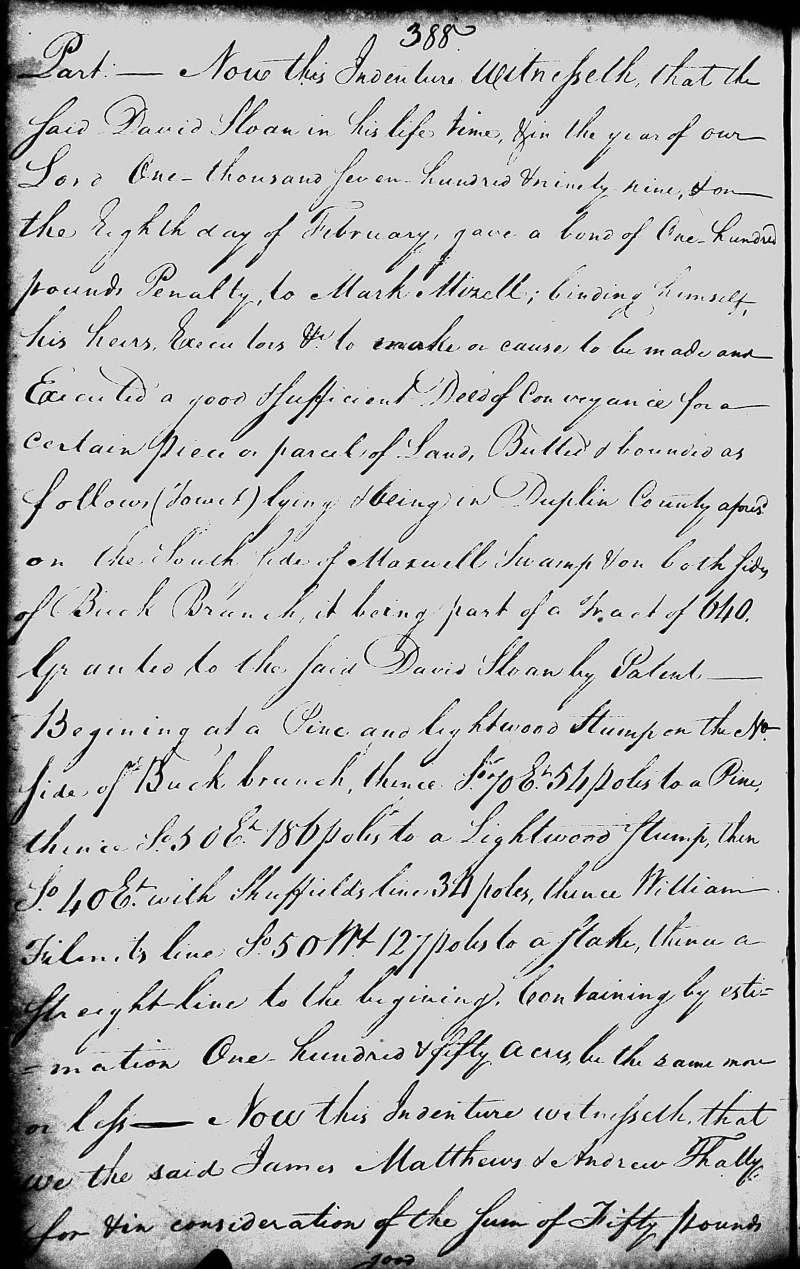 388
Part. — Now this Indenture Witnesseth, that the
said David Sloan in his life time, & in the year of our
Lord One-thousand seven-hundred & ninety nine, & on
the Eighth day of February, gave a bond of One-hundred
pounds Penalty, to Mark Mizell; binding himself,
his heirs, Executors &c. to make or cause to be made and
Executed a good & sufficient Deed of Conveyance for a
certain piece or parcel of Land, Butted & bounded as
follows (Towit) lying & being in Duplin County afores.d
on the South side of Maxwell Swamp & on both sides
of Buck Branch, it being part of a Tract of 640.
Granted to the said David Sloan by Patent —
Begining at a Pine and lightwood Stump on the No.
side of Buck branch, thence So. 70 Et. 54 poles to a Pine,
thence So. 50 Et. 186 poles to a Lightwood Stump, then
So. 40 Et. with Sheffield's line 34 poles, thence William
line So. 50 Wt. 127 poles to a Stake, thence a
Streight line to the begining, Containing by esti=
=mation One-hundred & fifty Acres, be the same more
or less — Now this Indenture witnesseth, that
we the said James Matthews & Andrew Thally,
for & in consideration of the Sum of Fifty pounds